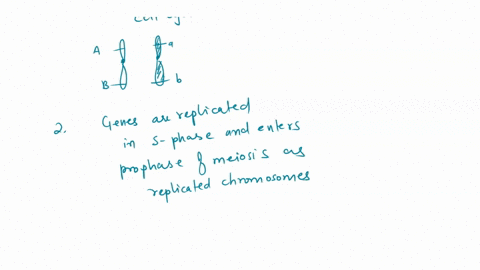 A a
B b
2. Genes are replicated
in S-phase and enters
prophase of meiosis as
replicated chromosomes